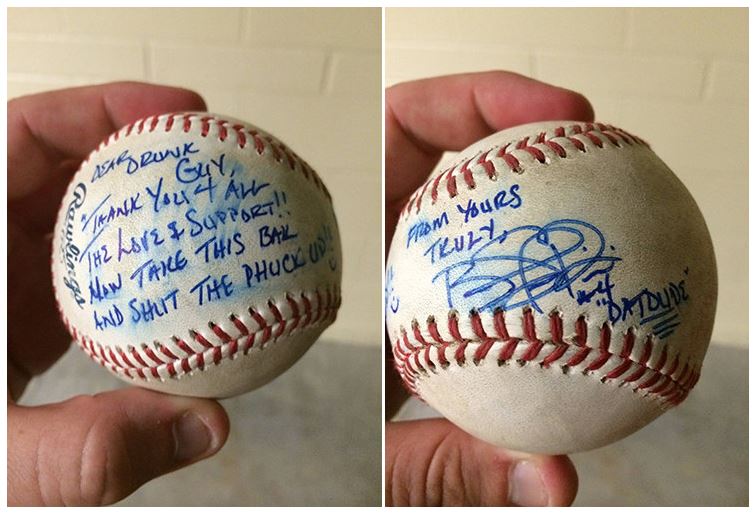 DEAR DRUNK
GUY,
THANK YOU 4 ALL
THE LOVE & SUPPORT!!
NOW TAKE THIS BALL
AND SHUT THE PHUCK UP!!
Rawlings
FROM YOURS
TRULY,
#4
"DATDUDE"